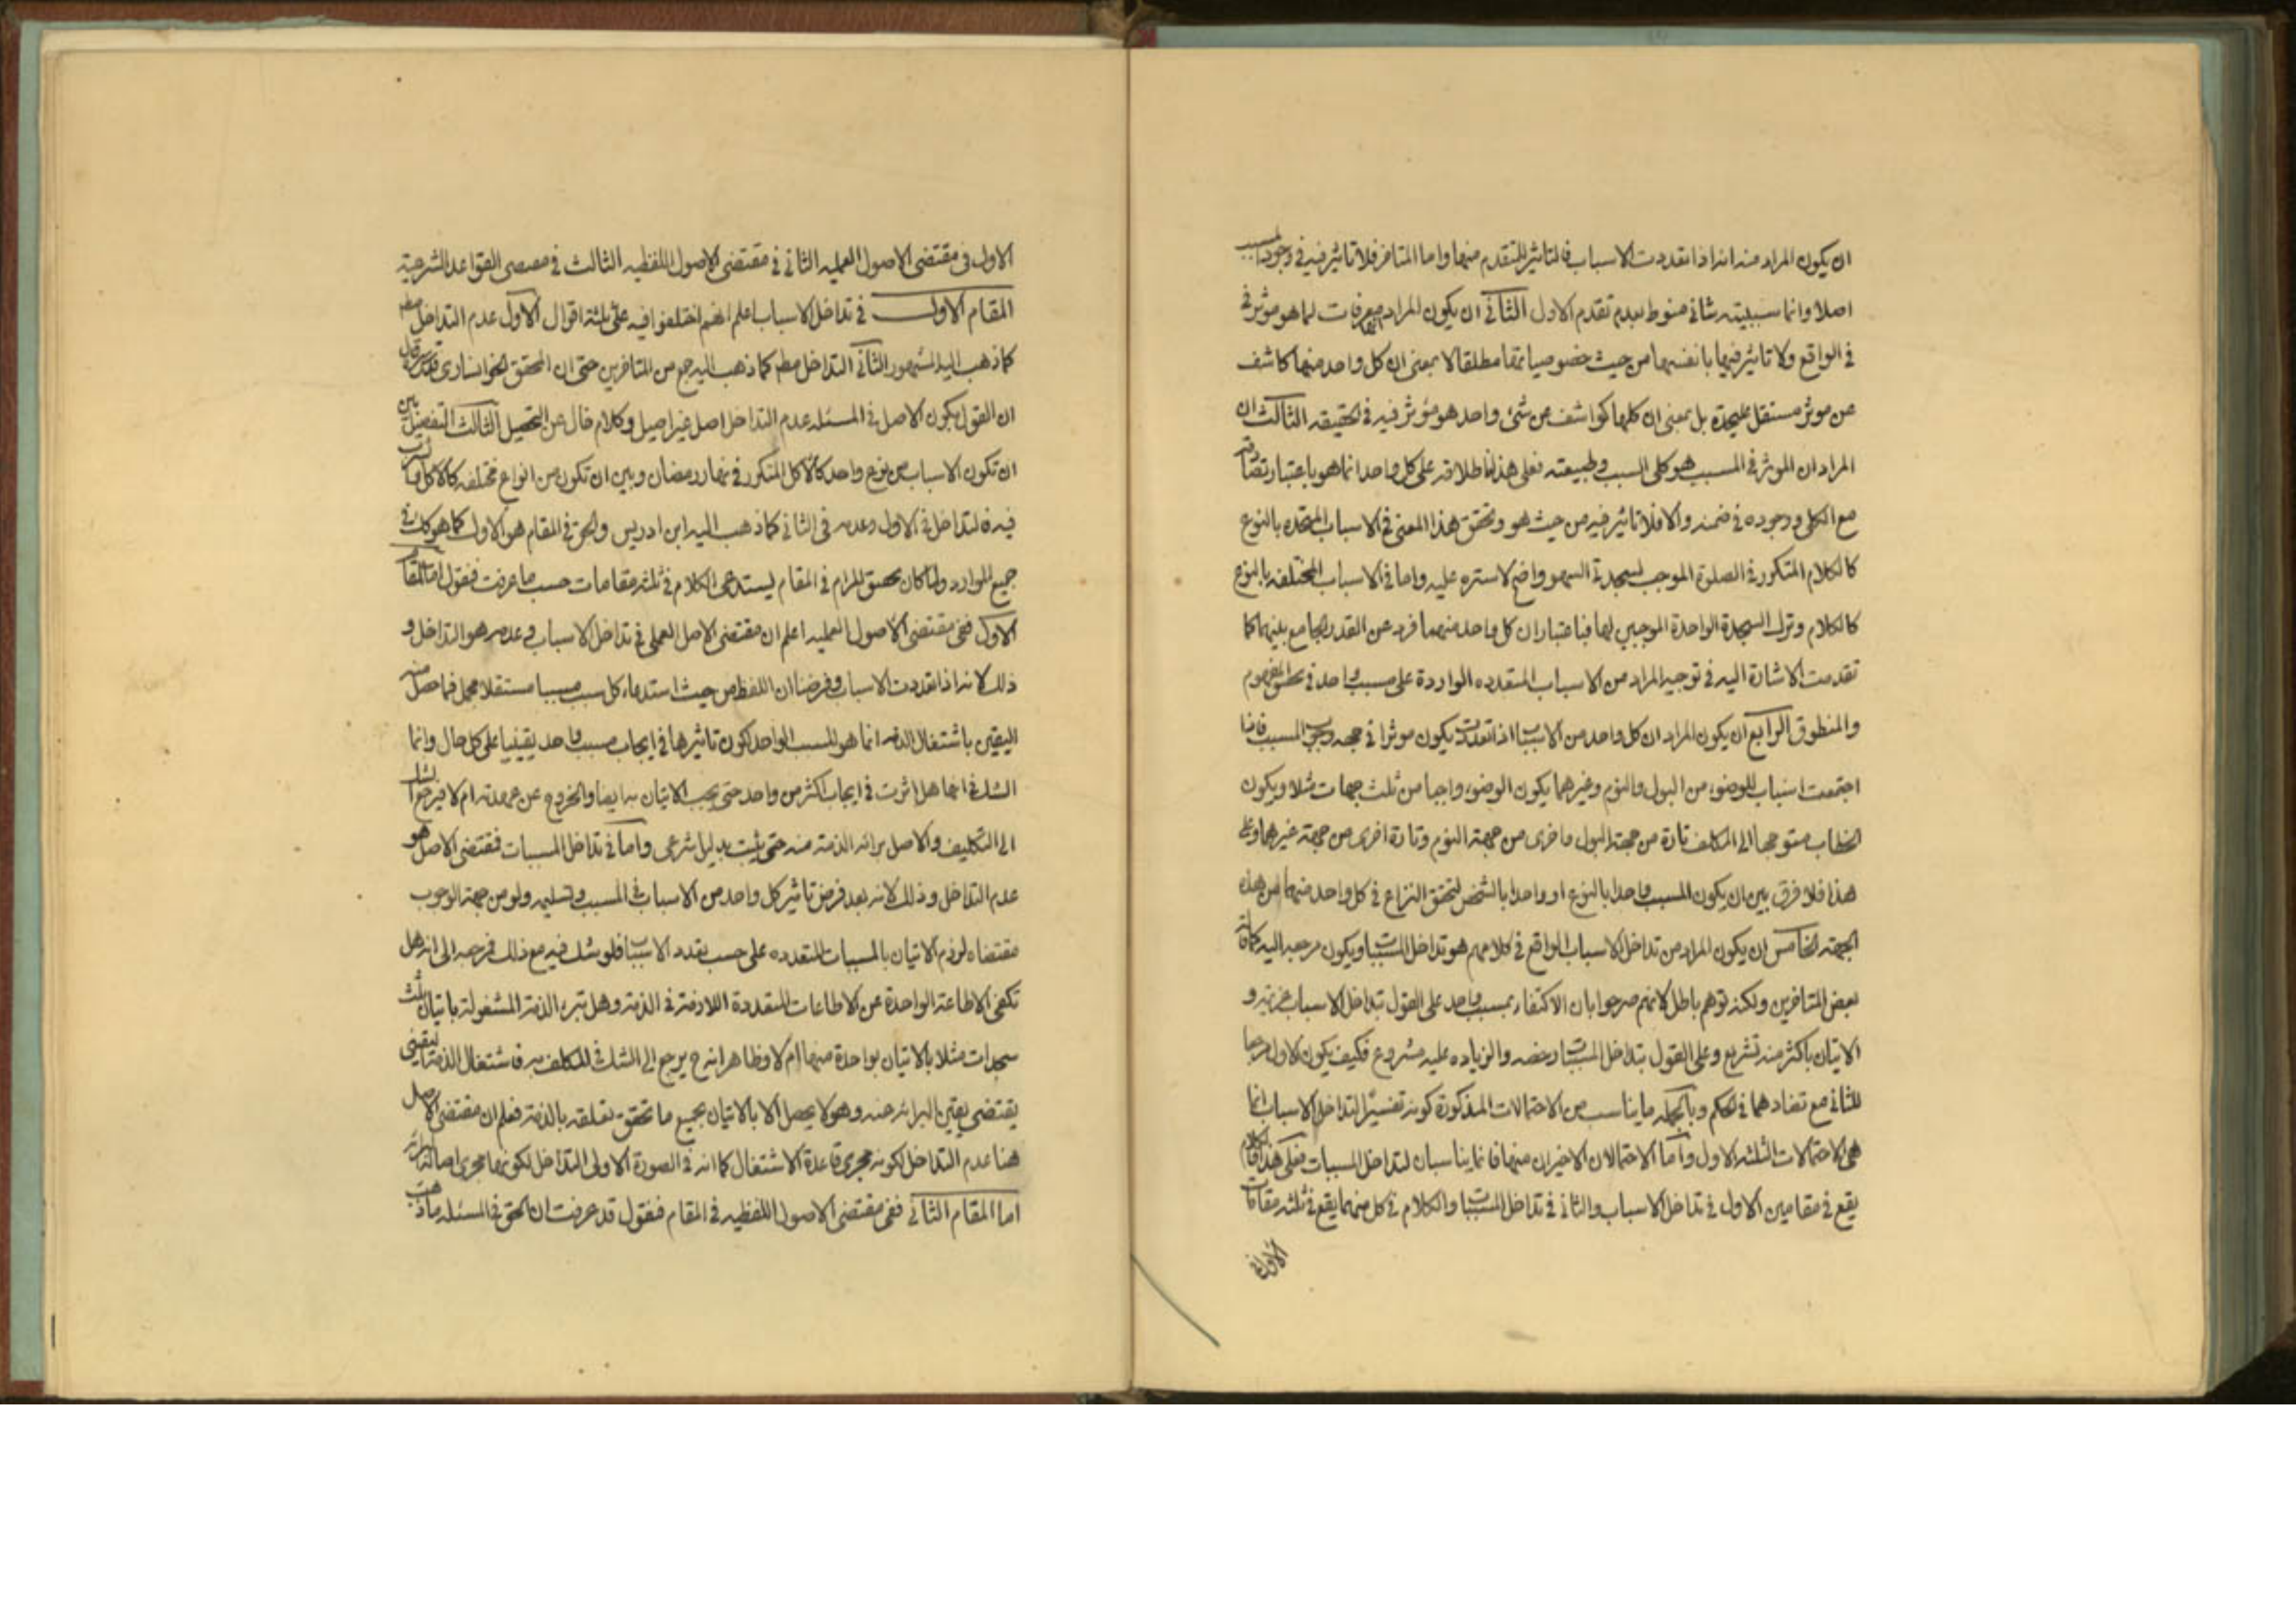 ان يكون المراد منه انه اذا تعددت الاسباب فالتاثير للمتقدم منها واما المتاخر فلا تاثير فيه في وجود المسبب
اصلا وانما سببيته شانى منوط بعدم تقدم الاول الثانى ان يكون المراد معرفات لما هو موثر فى
فى الواقع ولا تاثير فيها بانفسها من حيث خصوصياتها مطلقا لا بمعنى ان كل واحد منها كاشف
عن موثر مستقل عليحدة بل بمعنى ان كلها كواشف عن شئ واحد هو مؤثر فيه فى الحقيقه الثالث ان
المراد ان الموثر فى المسبب هو كلى السبب وطبيعته فعلى هذا اطلاقه على كل واحد انما هو باعتبار تصادقه
مع الكلى ووجوده فى ضمنه والا فلا تاثير فيه من حيث هو وتحقق هذا المعنى فى الاسباب المتحده بالنوع
كالكلام المتكرر فى الصلوة الموجب لسجدتى السهو واضح لا ستره عليه واما فى الاسباب المختلفه بالنوع
كالكلام وترك السجدة الواحدة الموجبين لها فباعتبار ان كل واحد منهما فرد عن القدر الجامع بينهما كما
تقدمت الاشارة اليه فى توجيه المراد من الاسباب المتعدده الواردة على مسبب واحد فى تحقق المفهوم
والمنطوق الرابع ان يكون المراد ان كل واحد من الاسباب اذا تعددت يكون موثرا فى جهه وجوب المسبب فاذا
اجتمعت اسباب للوضوء من البول والنوم وغيرهما يكون الوضوء واجبا من ثلث جهات مثلا ويكون
الخطاب متوجها الى المكلف تارة من جهة البول واخرى من جهة النوم وتارة اخرى من جهة غيرهما وعلى
هذا فلا فرق بين ان يكون المسبب واحدا بالنوع او واحدا بالشخص لتحقق النزاع فى كل واحد منهما من هذه
الجهة الخامس ان يكون المراد من تداخل الاسباب الواقع فى كلامهم هو تداخل المسببات ويكون مرجعه اليه كما قاله
بعض المتاخرين ولكنه توهم باطل لانهم صرحوا بان الاكتفاء بمسبب واحد على القول بتداخل الاسباب عزيمه و
الاتيان باكثر منه تشريع وعلى القول بتداخل المسببات رخصه والزياده عليه مشروع فكيف يكون الاول مرجعا
للثانى مع تضادهما فى الحكم وبالجمله ما يناسب من الاحتمالات المذكورة كونه تفسيرا لتداخل الاسباب انما
هى الاحتمالات الثلثه الاول واما الاحتمالان الاخيران منها فانما يناسبان لتداخل المسببات فعلى هذا الكلام
يقع فى مقامين الاول فى تداخل الاسباب والثانى فى تداخل المسببات والكلام فى كل منهما يقع فى ثلثه مقامات
الاول فى
الاول فى مقتضى الاصول العمليه الثانى فى مقتضى الاصول اللفظيه الثالث فى مقتضى القواعد الشرعية
المقام الاول فى تداخل الاسباب اعلم انهم اختلفوا فيه على ثلثة اقوال الاول عدم التداخل مطم
كما ذهب اليه المشهور الثانى التداخل مطم كما ذهب اليه جمع من المتاخرين حتى ان المحقق الخوانسارى
ان القول بكون الاصل فى المسئله عدم التداخل اصل غير اصيل وكلام خال عن التحصيل الثالث التفصيل بين
ان تكون الاسباب من نوع واحد كالاكل المتكرر فى نهار رمضان وبين ان تكون من انواع مختلفه كالاكل
فيه فالتداخل فى الاول وعدمه فى الثانى كما ذهب اليه ابن ادريس والحق فى المقام هو الاول كما هو كك فى
جميع الموارد ولما كان تحقيق المرام فى المقام يستدعى الكلام فى ثلثه مقامات حسب ما عرفت فنقول اما المقام
الاول ففى مقتضى الاصول العمليه اعلم ان مقتضى الاصل العملى فى تداخل الاسباب وعدمه هو التداخل و
ذلك لانه اذا تعددت الاسباب وفرضنا ان اللفظ من حيث استدعاء كل سبب مسببا مستقلا مجمل فما حصل منه
اليقين باشتغال الذمه انما هو المسبب الواحد لكون تاثيرها فى ايجاب مسبب واحد يقينيا على كل حال وانما
الشك فى انها هل اثرت فى ايجاب اكثر من واحد حتى يجب الاتيان به ايضا والخروج عن عهدته ام لا فيرجع الشك
الى التكليف والاصل برائه الذمة منه حتى يثبت بدليل شرعى واما فى تداخل المسببات فمقتضى الاصل هو
عدم التداخل وذلك لانه بعد فرض تاثير كل واحد من الاسباب فى المسبب وتسليمه ولو من جهة الوجوب
مقتضاه لزوم الاتيان بالمسببات المتعدده على حسب تعدد الاسباب فلو شك فيه مع ذلك فمرجعه الى انه هل
تكفى الاطاعة الواحدة عن الاطاعات المتعددة اللازمة فى الذمة وهل تبرء الذمة المشغولة باتيان ثلث
سجدات مثلا بالاتيان بواحدة منها ام لا وظاهر انه ح يرجع الى الشك فى المكلف به فاشتغال الذمة اليقينى
يقتضى يقين البرائه منه وهو لا يحصل الا بالاتيان بجميع ما تحقق تعلقه بالذمة فعلم ان مقتضى الاصل
هنا عدم التداخل لكونه مجرى قاعدة الاشتغال كما انه فى الصورة الاولى التداخل لكونها مجرى اصالة البرائه
اما المقام الثانى ففى مقتضى الاصول اللفظيه فى المقام فنقول قد عرفت ان الحق فى المسئله ما ذهب